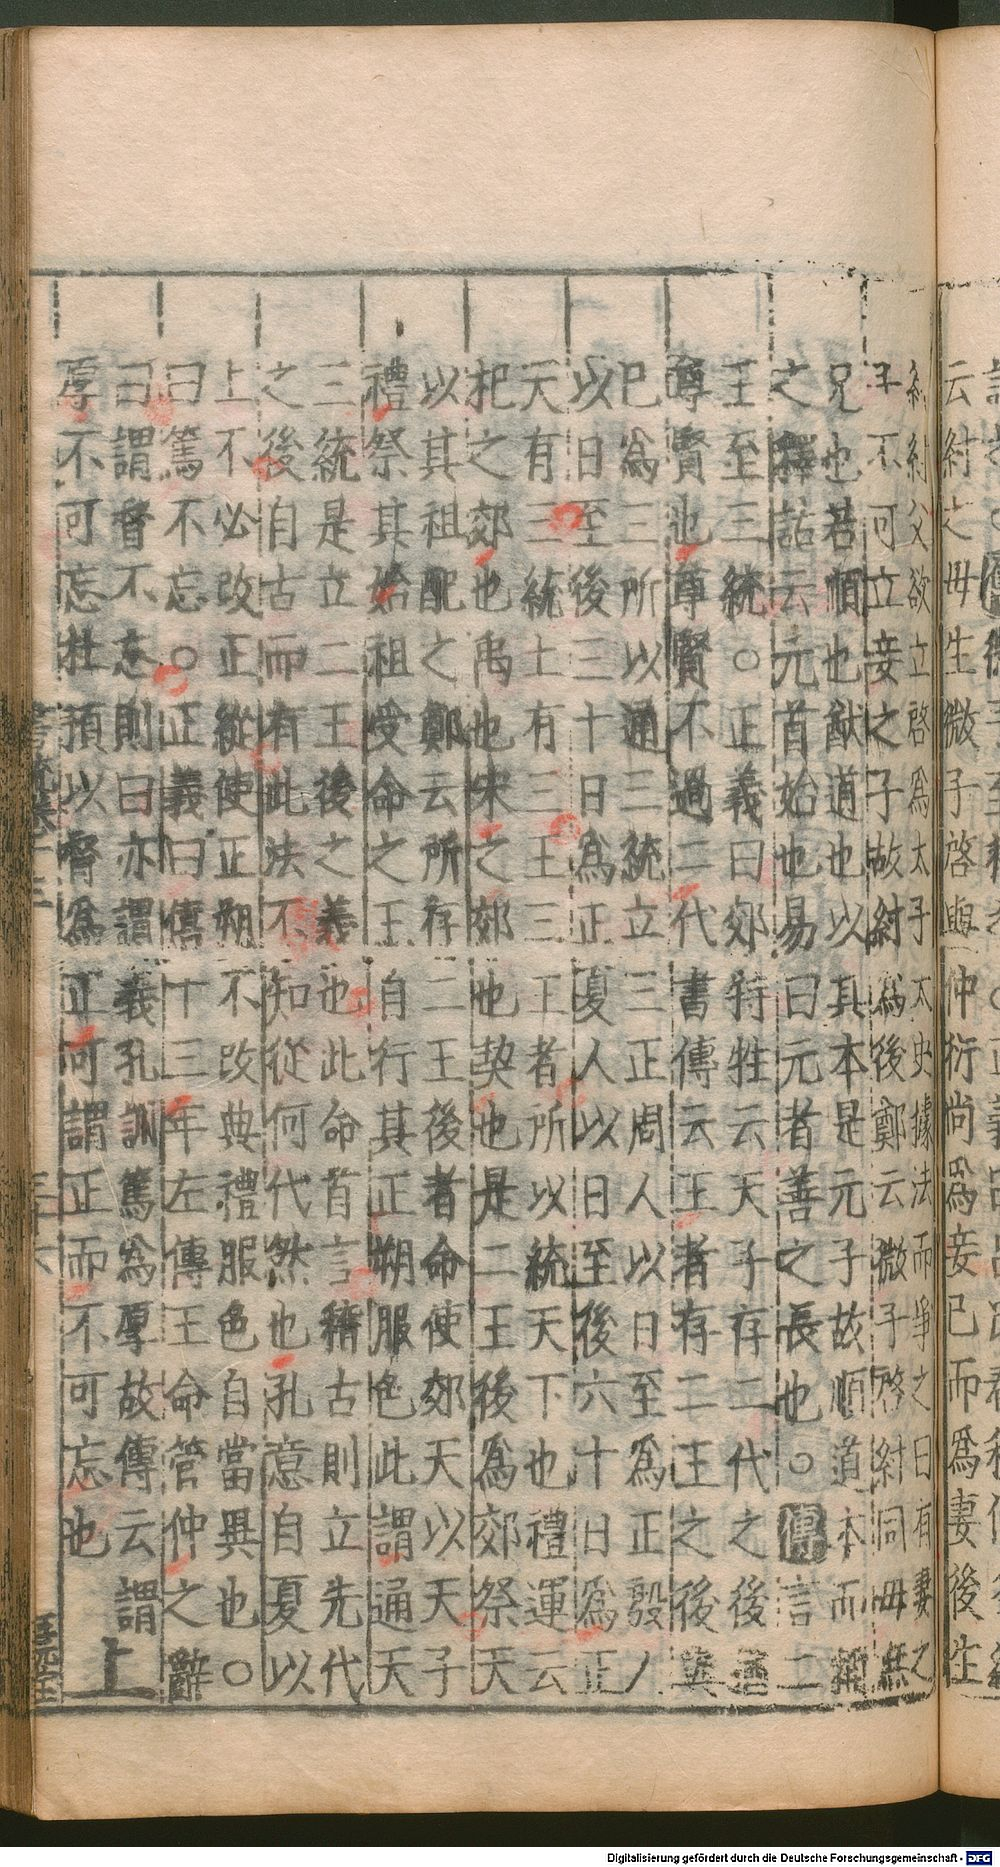 云紂之毋生微子啓與仲衍尚爲妾已而爲妻後生
紂紂父欲立啓爲太子太史據法而爭之曰有妻之
子不可立妾之子故紂爲後鄭云微子啓紂同毋庶
兄也若順也猷道也以其本是元子故順道本而稱
之釋詁云元首始也易曰元者善之長也○傳言二
王至三統○正義曰郊特牲云天子存二代之後猶
尊賢也尊賢不過二代書傳云王者存二王之後與
已爲三所以通三統立三正周人以日至爲正殷人
以日至後三十日爲正夏人以日至後六十日爲正
天有三統土有三王三王者所以統天下也禮運云
杞之郊也禹也宋之郊也契也是二王後爲郊祭天
以其祖配之鄭云所存二王後者命使郊天以天子
禮祭其始祖受命之王自行其正朔服色此謂通天
三統是立二王後之義也此命首言稽古則立先代
之後自古而有此法不知從何代然也孔意自夏以
上不必改正縱使正朔不改典禮服色自當異也○
曰篤不忘○正義曰僖十三年左傳王命管仲之辭
曰謂督不忘則曰亦謂義孔訓篤爲厚故傳云謂
厚不可忘杜預以督爲正可謂正而不可忘也
上
Digitalisierung gefördert durch die Deutsche Forschungsgemeinschaft - DFG